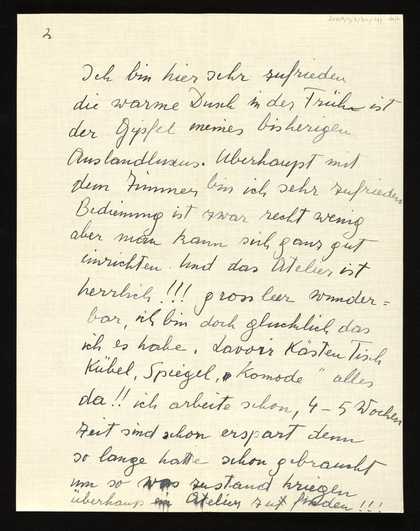 2
Ich bin hier sehr zufrieden
die warme Dusch in der Früh ist
der Gipfel meines bisherigen
Auslandluxus. Uberhaupt mit
dem Zimmer bin ich sehr zufrieden
Bedienung ist zwar recht wenig
aber man kann sich ganz gut
einrichten. Und das Atelier ist
herrlich!!! gross leer wunder=
bar, ich bin doch glucklich das
ich es habe. Lavoir Kästen Tisch
Kübel, Spiegel, "Komode" alles
da!! ich arbeite schon, 4-5 Wochen
Zeit sind schon erspart denn
so lange hatte schon gebraucht
um so was zustand kriegen
überhaup ein Atelier zu finden!!!